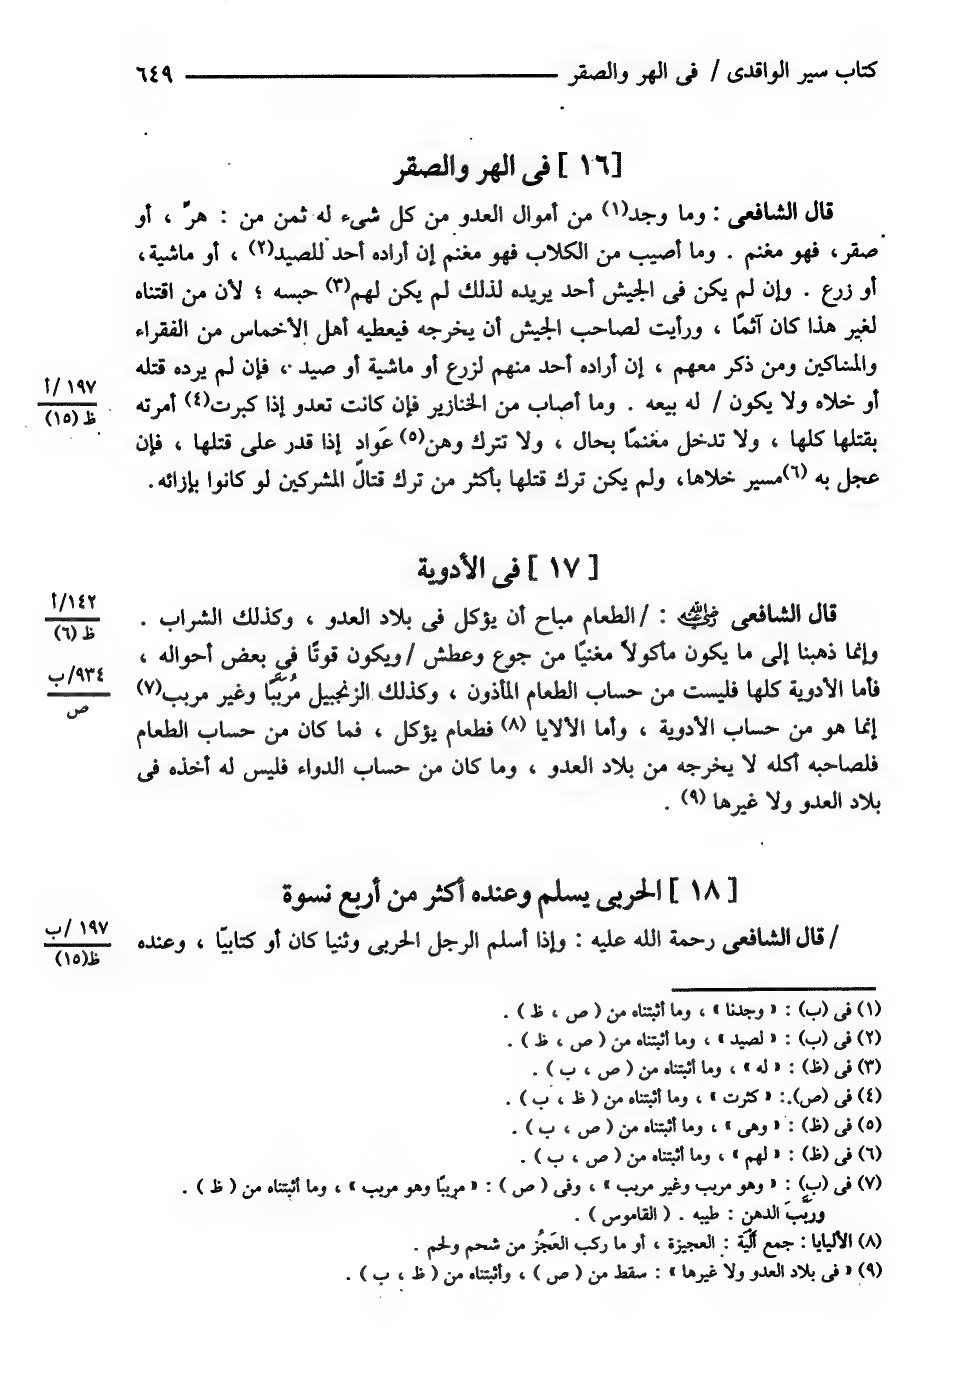 كتاب سير الواقدى / فى الهر والصقر ٦٤٩
[١٦] فى الهر والصقر
قال الشافعى : وما وجد(١) من أموال العدو من كل شىء له ثمن من : هرٍّ ، أو
صقر، فهو مغنم . وما أصيب من الكلاب فهو مغنم إن أراده أحد للصيد(٢) ، أو ماشية،
أو زرع . وإن لم يكن فى الجيش أحد يريده لذلك لم يكن لهم(٣) حبسه ؛ لأن من اقتناه
لغير هذا كان آثمًا ، ورأيت لصاحب الجيش أن يخرجه فيعطيه أهل الأخماس من الفقراء
والمساكين ومن ذكر معهم ، إن أراده أحد منهم لزرع أو ماشية أو صيد ، فإن لم يرده قتله
أو خلاه ولا يكون / له بيعه . وما أصاب من الخنازير فإن كانت تعدو إذا كبرت(٤) أمرته
١٩٧ /أ
ظ (١٥)
بقتلها كلها ، ولا تدخل مغنمًا بحال ، ولا تترك وهن(٥) عَوادٍ إذا قدر على قتلها ، فإن
عجل به (٦)مسير خلاها، ولم يكن ترك قتلها بأكثر من ترك قتال المشركين لو كانوا بإزائه.
[ ١٧ ] فى الأدوية
قال الشافعى رضي الله عنه : / الطعام مباح أن يؤكل فى بلاد العدو ، وكذلك الشراب .
١٤٢/أ
ظ (٦)
وإنما ذهبنا إلى ما يكون مأكولاً مغنيًا من جوع وعطش / ويكون قوتًا فى بعض أحواله ،
٩٣٤/ب
ص
فأما الأدوية كلها فليست من حساب الطعام المأذون ، وكذلك الزنجبيل مُربَّبًا وغير مربب(٧)
إنما هو من حساب الأدوية ، وأما الألايا (٨) فطعام يؤكل ، فما كان من حساب الطعام
فلصاحبه أكله لا يخرجه من بلاد العدو ، وما كان من حساب الدواء فليس له أخذه فى
بلاد العدو ولا غيرها (٩) .
[ ١٨ ] الحربى يسلم وعنده أكثر من أربع نسوة
/ قال الشافعى رحمة الله عليه : وإذا أسلم الرجل الحربى وثنيا كان أو كتابيًا ، وعنده
١٩٧ /ب
ظ(١٥)
(١) فى (ب) : « وجدنا » ، وما أثبتناه من ( ص ، ظ ) .
(٢) فى (ب) : « لصيد » ، وما أثبتناه من ( ص ، ظ ) .
(٣) فى (ظ) : « له » ، وما أثبتناه من ( ص ، ب ) .
(٤) فى (ص).: « كثرت » ، وما أثبتناه من ( ظ ، ب ) .
(٥) فى (ظ) : « وهى » ، وما أثبتناه من ( ص ، ب ) .
(٦) فى (ظ) : « لهم » ، وما أثبتناه من ( ص ، ب ) .
(٧) فى (ب) : « وهو مربب وغير مربب » ، وفى ( ص ) : « مرببًا وهو مربب » ، وما أثبتناه من ( ظ ) .
وربَّبَ الدهن : طيبه . ( القاموس ) .
(٨) الألايا : جمع ألْيَة : العجيزة ، أو ما ركب العَجُز من شحم ولحم .
(٩) « فى بلاد العدو ولا غيرها » : سقط من ( ص ) ، وأثبتناه من ( ظ ، ب ) .